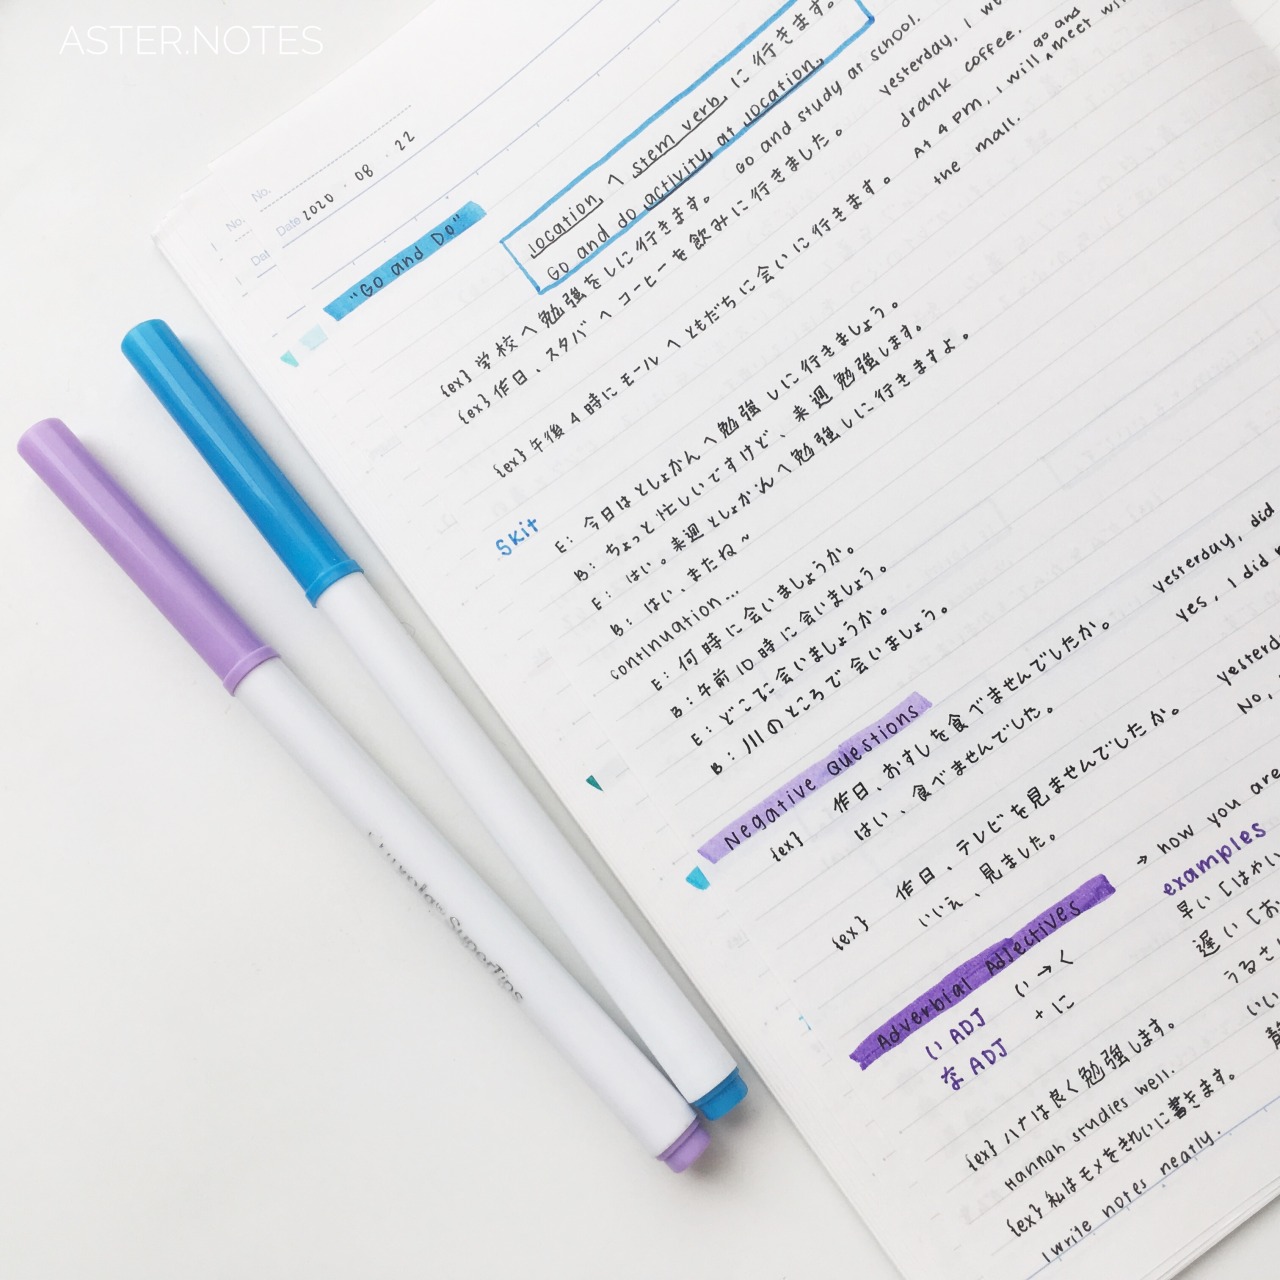 ASTER.NOTES
No.
No.
Date 2020 · 08 · 22
Dat
"Go and Do"
location へ stem verb に行きます。
Go and do activity at location.
{ex} 学校へ勉強をしに行きます。 Go and study at school.
{ex} 作日、スタバへコーヒーを飲みに行きました。 yesterday, I
drank coffee.
{ex} 午後4時にモールへともだちに会いに行きます。 At 4 PM, I will go and meet
the mall.
Skit
E: 今日はとしょかんへ勉強しに行きましょう。
B: ちょっと忙しいですけど、来週勉強します。
E: はい。来週としょかんへ勉強しに行きますよ。
B: はい、またね~
continuation...
E: 何時に会いましょうか。
B: 午前10時に会いましょう。
E: どこに会いましょうか。
B: 川のところで会いましょう。
Negative Questions
{ex} 作日、おすしを食べませんでしたか。 yesterday, did
はい、食べませんでした。 yes, I did
{ex} 作日、テレビを見ませんでしたか。
いいえ、見ました。 No,
Adverbial Adjectives → how you are
examples
い ADJ い→く 早い [はやい
な ADJ +に 遅い [お
うるさ
いい
{ex} ハナは良く勉強します。
Hannah studies well.
{ex} 私はモメをきれいに書きます。
I write notes neatly.
Crayola SuperTips